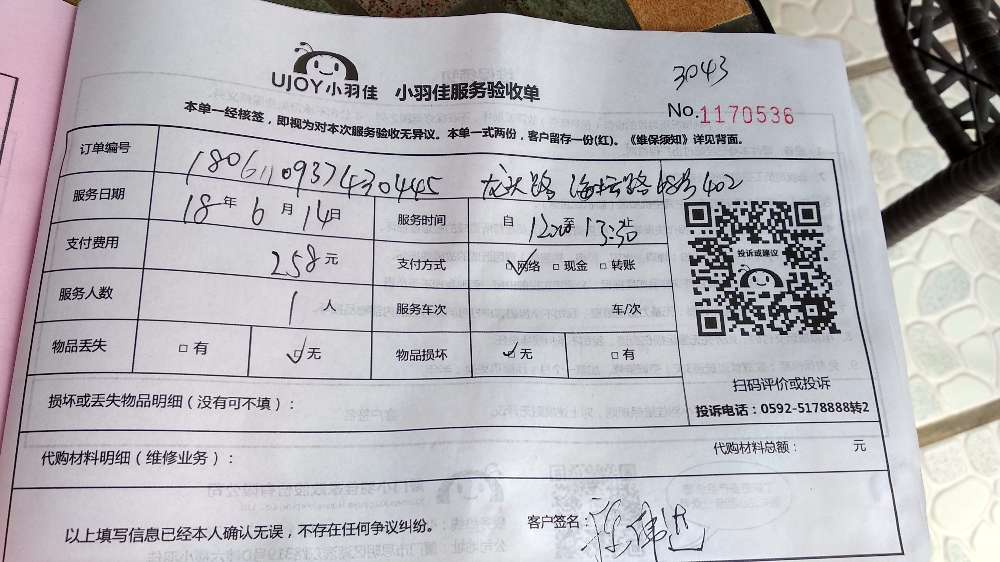 3043
UJOY小羽佳 小羽佳服务验收单
No.1170536
本单一经核签，即视为对本次服务验收无异议。本单一式两份，客户留存一份(红)。《维保须知》详见背面。
订单编号 1806110937430445 龙头路 海坛路 号402
服务日期 18年6月14日 服务时间 自1200至13:30
支付费用 258元 支付方式 ☑网络 □现金 □转账
服务人数 1人 服务车次 车/次
物品丢失 □有 ☑无 物品损坏 ☑无 □有
投诉或建议
扫码评价或投诉
投诉电话：0592-5178888转2
损坏或丢失物品明细（没有可不填）：
代购材料明细（维修业务）： 代购材料总额： 元
以上填写信息已经本人确认无误，不存在任何争议纠纷。 客户签名：